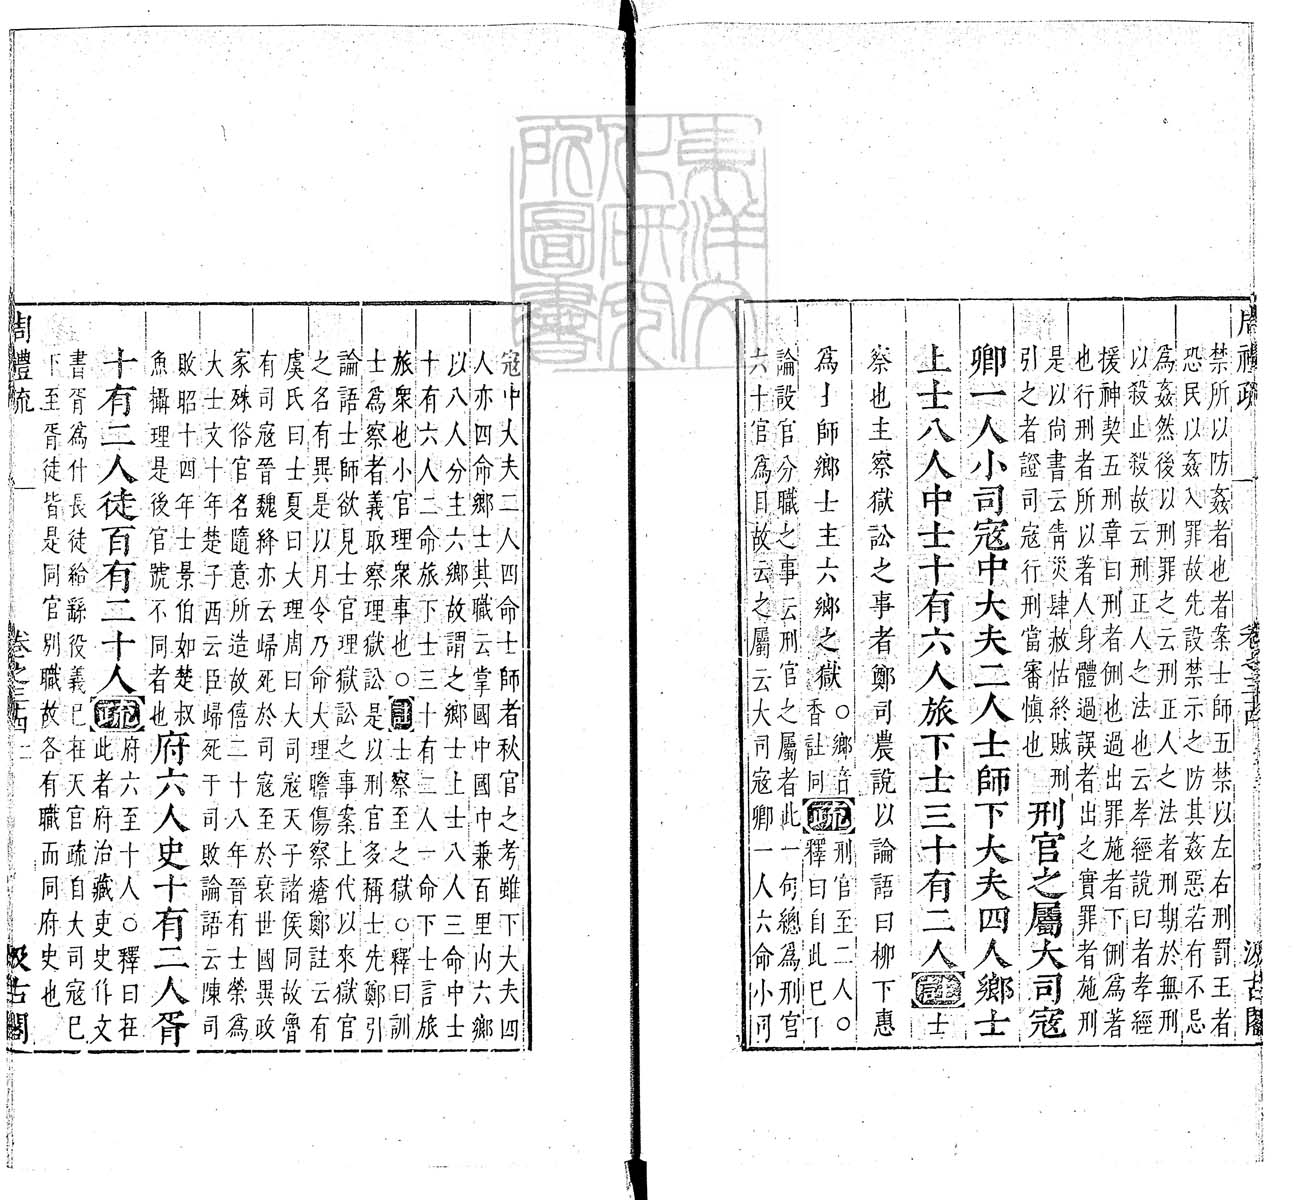 周禮疏
一
卷之三十四
汲古閣
禁所以防姦者也者案士師五禁以左右刑罰王者
恐民以姦入罪故先設禁示之防其姦惡若有不忌
爲姦然後以刑罪之云刑正人之法者刑期於無刑
以殺止殺故云刑正人之法也云孝經說曰者孝經
援神契五刑章曰刑者侀也過出罪施者下侀爲著
也行刑者所以著人身體過誤者出之實罪者施刑
是以尚書云眚災肆赦怙終賊刑
引之者證司寇行刑當審慎也
刑官之屬大司寇
卿一人小司寇中大夫二人士師下大夫四人鄉士
上士八人中士十有六人旅下士三十有二人 註 士
察也主察獄訟之事者鄭司農說以論語曰柳下惠
爲士師鄉士主六鄉之獄
○鄉音
香註同
疏
刑官至二人○
釋曰自此已下
論設官分職之事云刑官之屬者此一句總爲刑官
六十官爲目故云之屬云大司寇卿一人六命小司
寇中大夫二人四命士師者秋官之考雖下大夫四
人亦四命鄉士其職云掌國中國中兼百里内六鄉
以八人分主六鄉故謂之鄉士上士八人三命中士
十有六人二命旅下士三十有二人一命下士言旅
旅衆也小官理衆事也○ 註 士察至之獄○釋曰訓
士爲察者義取察理獄訟是以刑官多稱士先鄭引
論語士師欲見士官理獄訟之事案上代以來獄官
之名有異是以月令乃命大理瞻傷察瘡鄭註云有
虞氏曰士夏曰大理周曰大司寇天子諸侯同故魯
有司寇晉魏絳亦云歸死於司寇至於衰世國異政
家殊俗官名隨意所造故僖二十八年晉有士榮爲
大士文十年楚子西云臣歸死于司敗論語云陳司
敗昭十四年士景伯如楚叔
魚攝理是後官號不同者也
府六人史十有二人胥
十有二人徒百有二十人
疏
府六至十人○釋曰在
此者府治藏吏史作文
書胥爲什長徒給繇役義已在天官疏自大司寇已
下至胥徒皆是同官別職故各有職而同府史也
周禮疏
一
卷之三十四
二
汲古閣
東洋文
化研究
所圖書